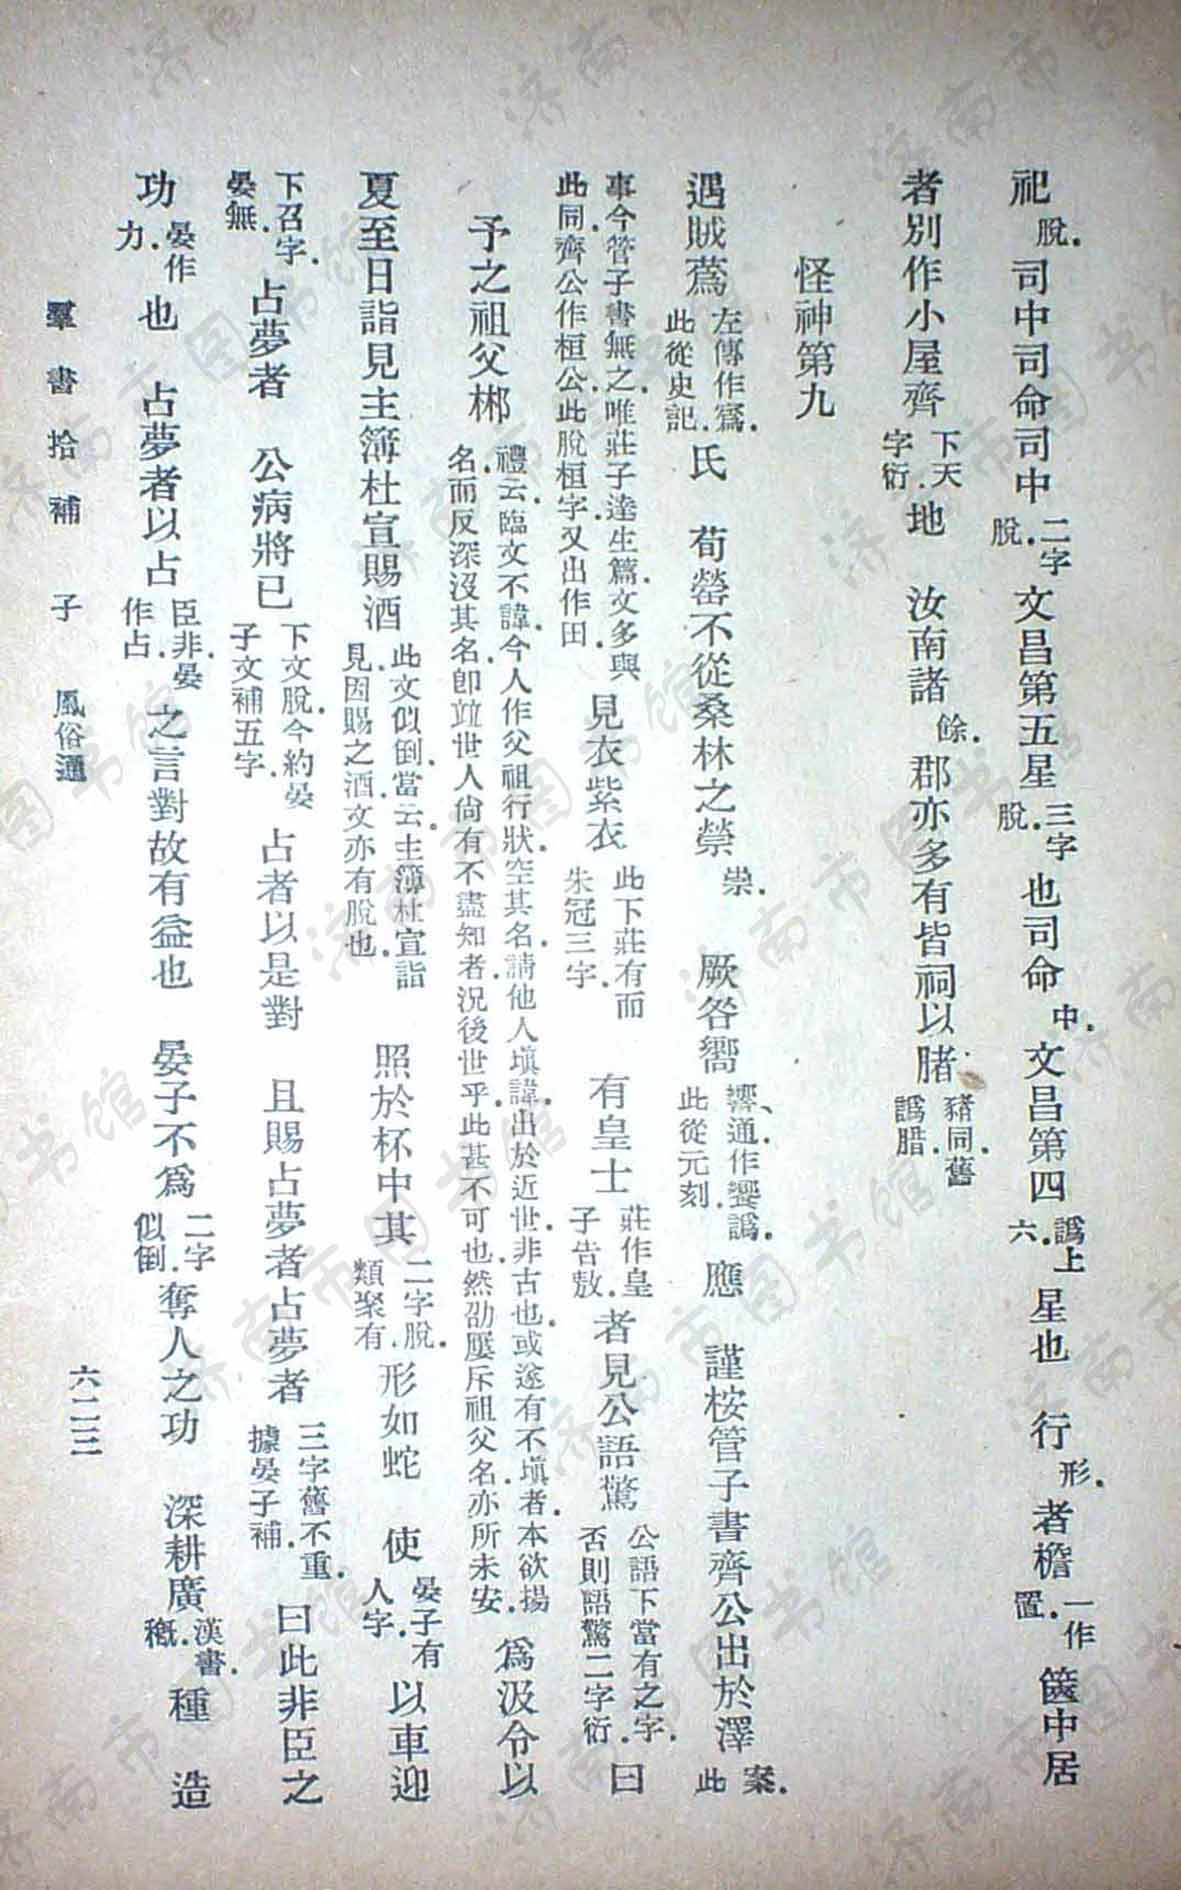 祀脫.司中司命司中二字脫.文昌第五星三字脫.也司命中.文昌第四譌上六.星也　行形.者檐一作置.篋中居
者別作小屋齊下天字衍.地　汝南諸餘.郡亦多有皆祠以䐗豬同.舊譌腊.
怪神第九
遇賊蔿左傳作寪.此從史記.氏　荀罃不從桑林之禜祟.　厥咎嚮響、通.作饗譌.此從元刻.應　謹桉管子書齊公出於澤案.此
事今管子書無之.唯莊子達生篇.文多與此同.齊公作桓公.此脫桓字.又出作田.見衣紫衣此下莊有而朱冠三字.　有皇士莊作皇子告敖.者見公語驚公語下當有之字.否則語驚二字衍.曰
予之祖父郴禮云.臨文不諱.今人作父祖行狀.空其名.請他人填諱.出於近世.非古也.或遂有不填者.本欲揚名.而反深沒其名.卽竝世人尙有不盡知者.況後世乎.此甚不可也.然劭屢斥祖父名.亦所未安.爲汲令以
夏至日詣見主簿杜宣賜酒此文似倒.當云.主簿杜宣詣見.因賜之酒.文亦有脫也.　照於杯中其二字脫.類聚有.形如蛇　使晏子有人字.以車迎
下召字.晏無.占夢者　公病將已下文脫.今約晏子文補五字.占者以是對　且賜占夢者占夢者三字舊不重.據晏子補.曰此非臣之
功晏作力.也　占夢者以占臣非.晏作占.之言對故有益也　晏子不爲二字似倒.奪人之功　深耕廣漢書.穊.種　造
羣書拾補　子　風俗通
六二三